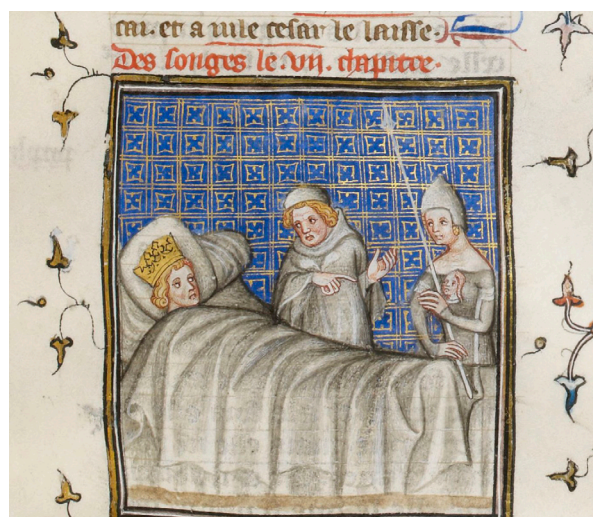 cai. et a iule cesar le laisse.
Des songes le .vii. chapitre.